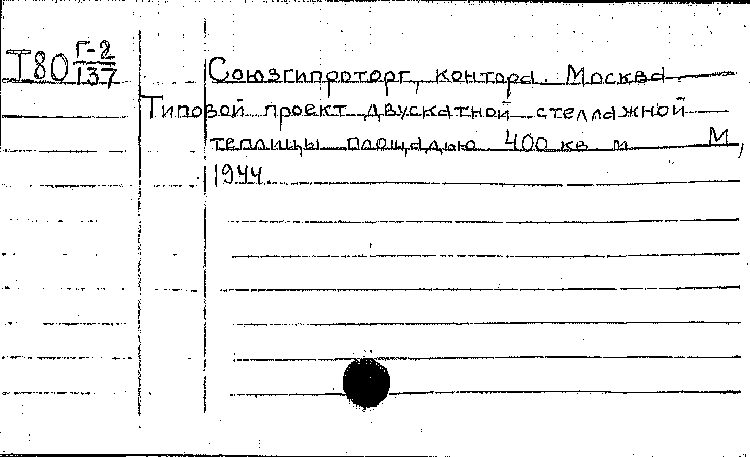 I80 Г-2/137
Союзгипроторг, контора. Москва
Типовой проект двускатной стеллажной
теплицы площадью 400 кв. м. М,
1944.